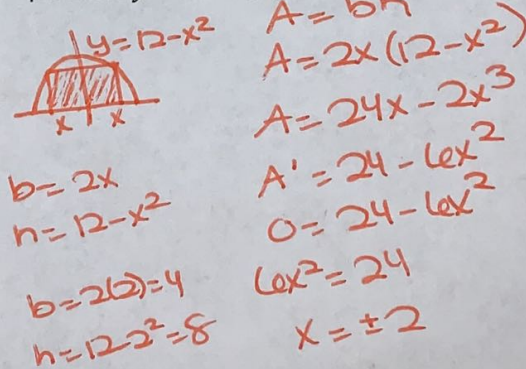 y=12-x²
x x
b=2x
h=12-x²
b=2(2)=4
h=12-2²=8
A=bh
A=2x(12-x²)
A=24x-2x³
A'=24-6x²
0=24-6x²
6x²=24
x=±2